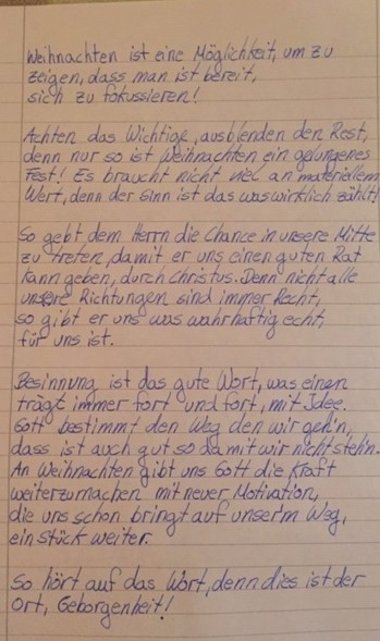 Weihnachten ist eine Möglichkeit, um zu
zeigen, dass man ist bereit,
sich zu fokussieren!
Achten das Wichtige, ausblenden den Rest,
denn nur so ist Weihnachten ein gelungenes
Fest! Es braucht nicht viel an materiellem
Wert, denn der Sinn ist das was wirklich zählt!
So gebt dem Herrn die Chance in unsere Mitte
zu treten, damit er uns einen guten Rat
kann geben, durch Christus. Denn nicht alle
unsere Richtungen sind immer Recht,
so gibt er uns was wahrhaftig echt,
für uns ist.
Besinnung ist das gute Wort, was einen
trägt immer fort und fort, mit Idee.
Gott bestimmt den Weg den wir geh'n,
dass ist auch gut so damit wir nicht steh'n.
An Weihnachten gibt uns Gott die Kraft
weiterzumachen mit neuer Motivation,
die uns schon bringt auf unserm Weg,
ein Stück weiter.
So hört auf das Wort, denn dies ist der
Ort, Geborgenheit!